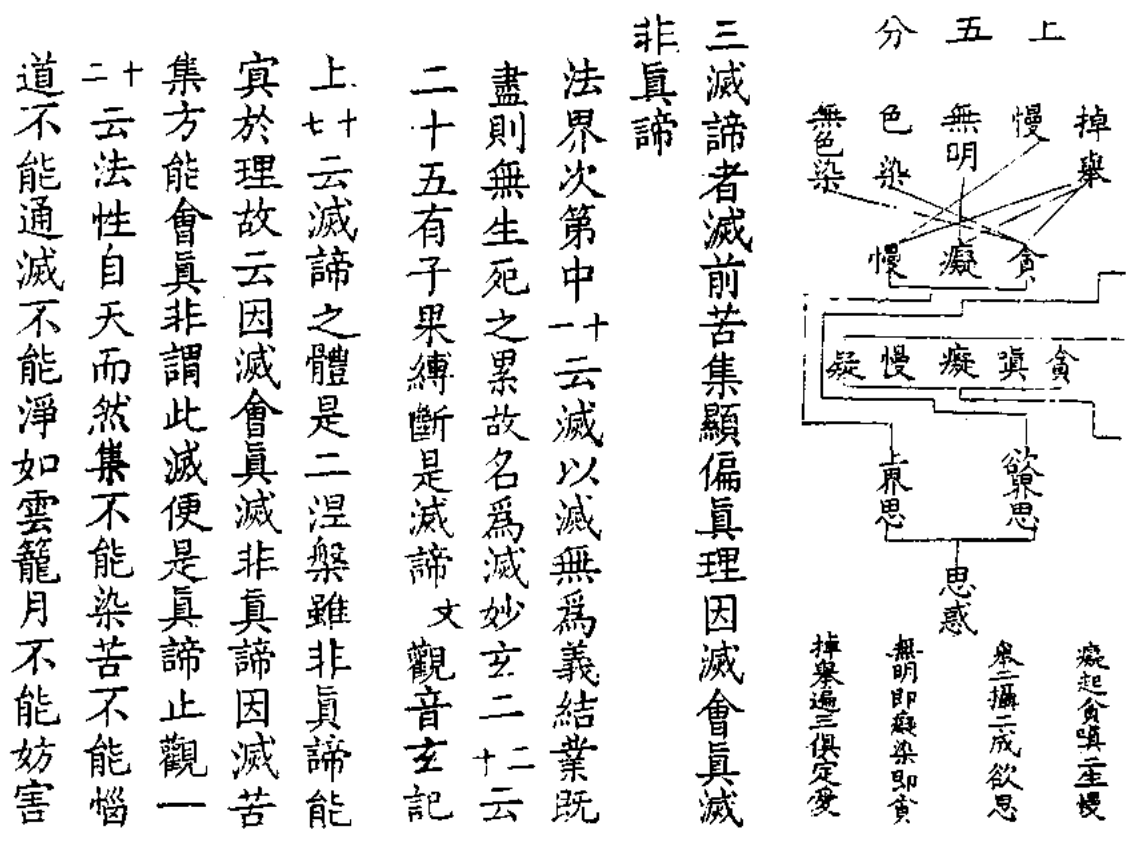 上五分
掉舉
慢
無明
色染
無色染
貪
癡
慢
貪
嗔
癡
慢
疑
欲界思
上界思
思惑
癡起貪嗔二生慢
舉二攝二成欲思
無明即癡染即貪
掉舉遍三俱定愛
三滅諦者滅前苦集顯偏眞理因滅會眞滅
非眞諦
法界次第中十一云滅以滅無爲義結業既
盡則無生死之累故名爲滅妙玄二二十云
二十五有子果縛斷是滅諦文觀音玄記
上十七云滅諦之體是二涅槃雖非眞諦能
冥於理故云因滅會眞滅非眞諦因滅苦
集方能會眞非謂此滅便是眞諦止觀一
十二云法性自天而然集不能染苦不能惱
道不能通滅不能淨如雲籠月不能妨害